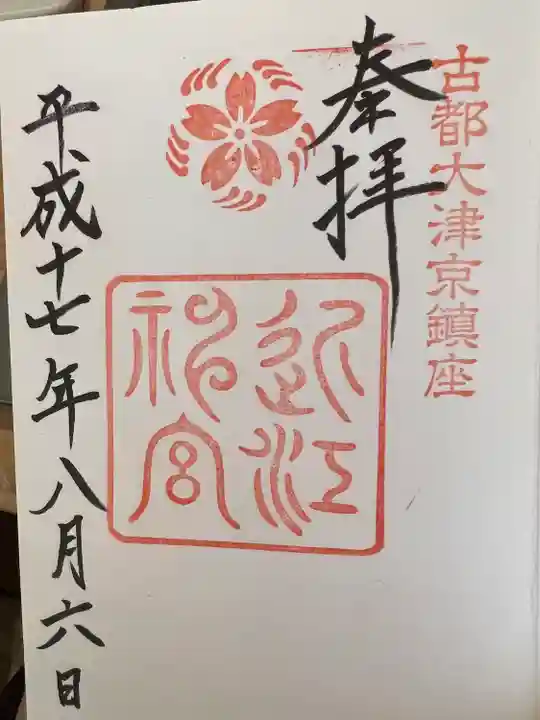 古都大津京鎮座
奉拝
近江
神宮
平成十七年八月六日